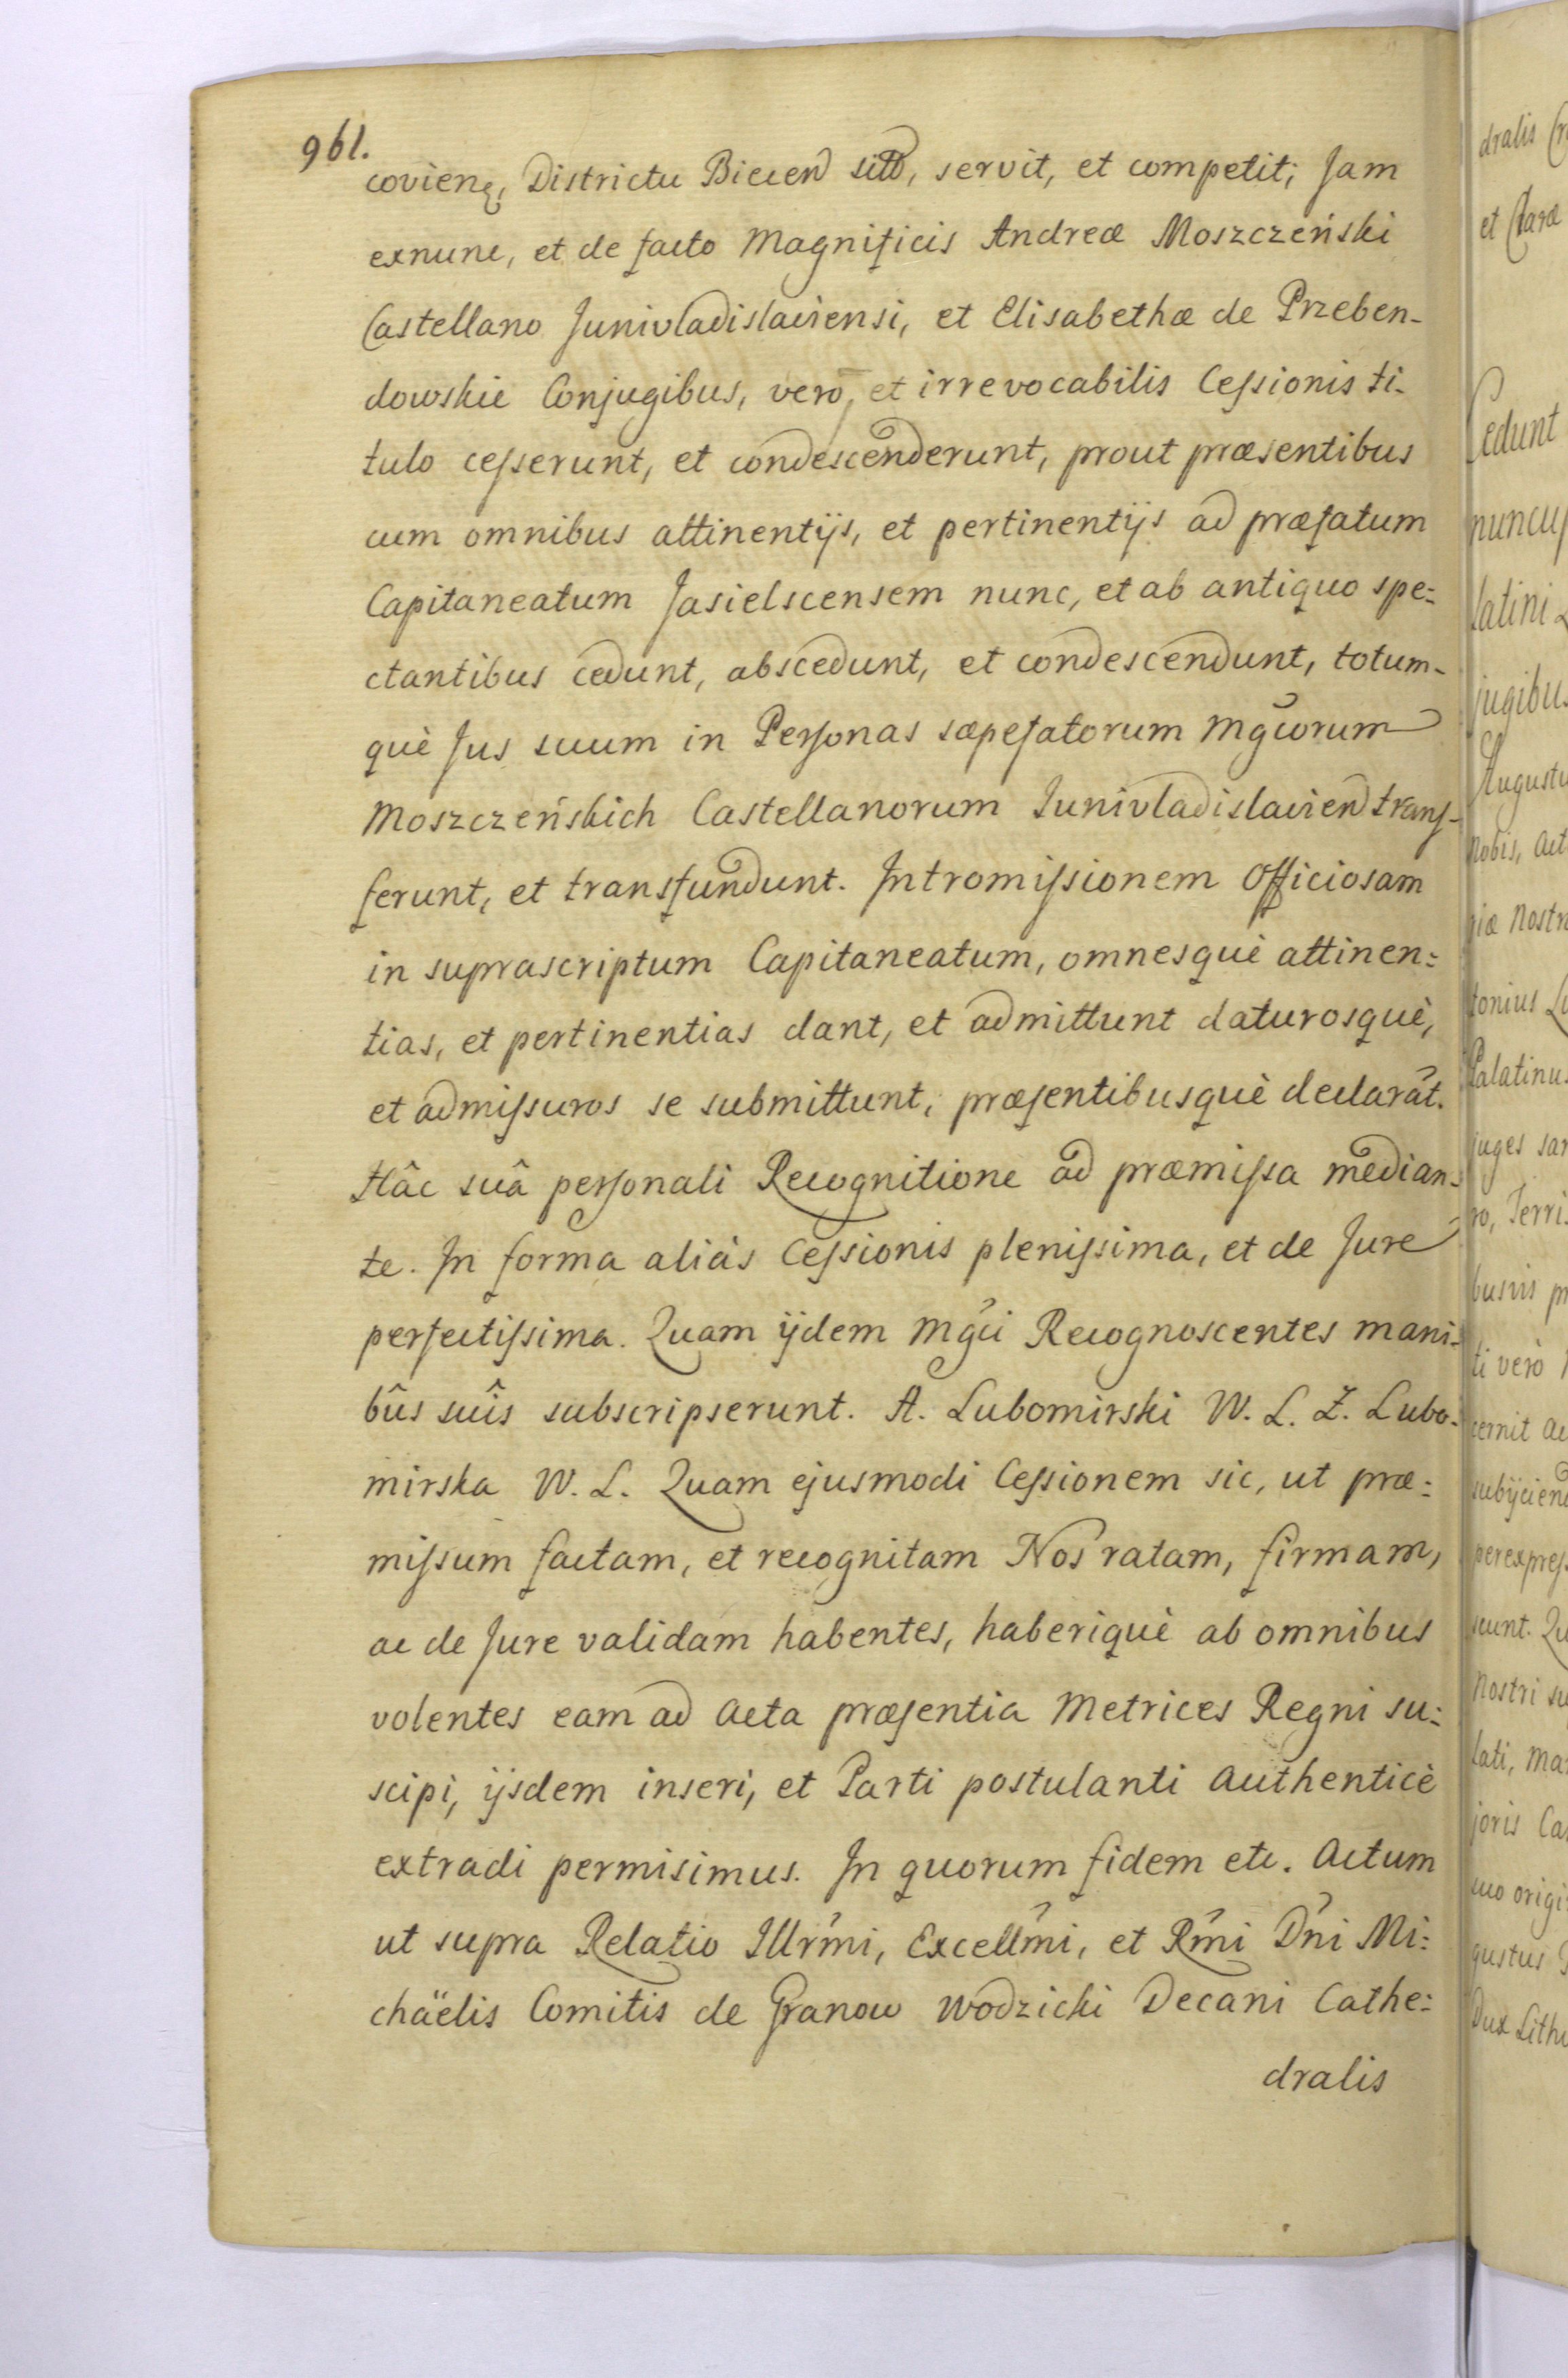 961.
covienę, Districtu Biecen sito, servit, et competit; Jam
exnunc, et de facto Magnificis Andreæ Moszczeński
Castellano Junivladislaviensi, et Elisabethæ de Przeben-
dowskie Conjugibus, vero, et irrevocabilis Cessionis ti-
tulo cesserunt, et condescenderunt, prout præsentibus
cum omnibus attinentijs, et pertinentijs ad præfatum
Capitaneatum Jasielscensem nunc, et ab antiquo spe:
ctantibus cedunt, abscedunt, et condescendunt, totum-
què Jus suum in Personas sæpefatorum Mgcorum
Moszczeńskich Castellanorum Junivladislavien trans-
ferunt, et transfundunt. Intromissionem Officiosam
in suprascriptum Capitaneatum, omnesquè attinen:
tias, et pertinentias dant, et admittunt daturosquè,
et admissuros se submittunt, præsentibusquè declarāt.
Hâc suâ personali Recognitione ad præmissa median:
te. In forma aliàs Cessionis plenissima, et de Jure
perfectissima. Quam ijdem Mgci Recognoscentes mani:
bûs suîs subscripserunt. A. Lubomirski W. L. Z. Lubo-
mirska W. L. Quam ejusmodi Cessionem sic, ut præ:
missum factam, et recognitam Nos ratam, firmam,
ac de Jure validam habentes, haberiquè ab omnibus
volentes eam ad Acta præsentia Metrices Regni su:
scipi, ijsdem inseri, et Parti postulanti Authenticè
extradi permisimus. In quorum fidem etc. Actum
ut supra Relatio Illrmi, Excellmi, et Rmi Dni Mi:
chäelis Comitis de Granow Wodzicki Decani Cathe:
dralis
dralis
et Claræ
Cedunt
latini
Augustu
nobis, Act
Palatinus
ti verò
Nostri su
joris Ca
Dux Lithu